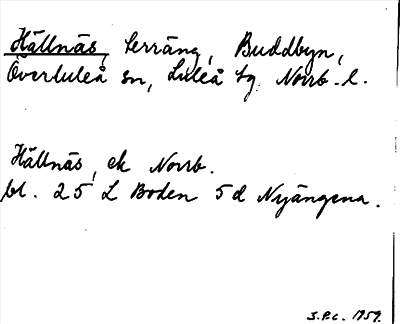 Hällnäs, terräng, Buddbyn,
Överluleå sn, Luleå tg. Norrb. l.
Hällnäs, ek Norrb.
bl. 25 L Boden 5d Nyängena.
S.P.C. 1959.